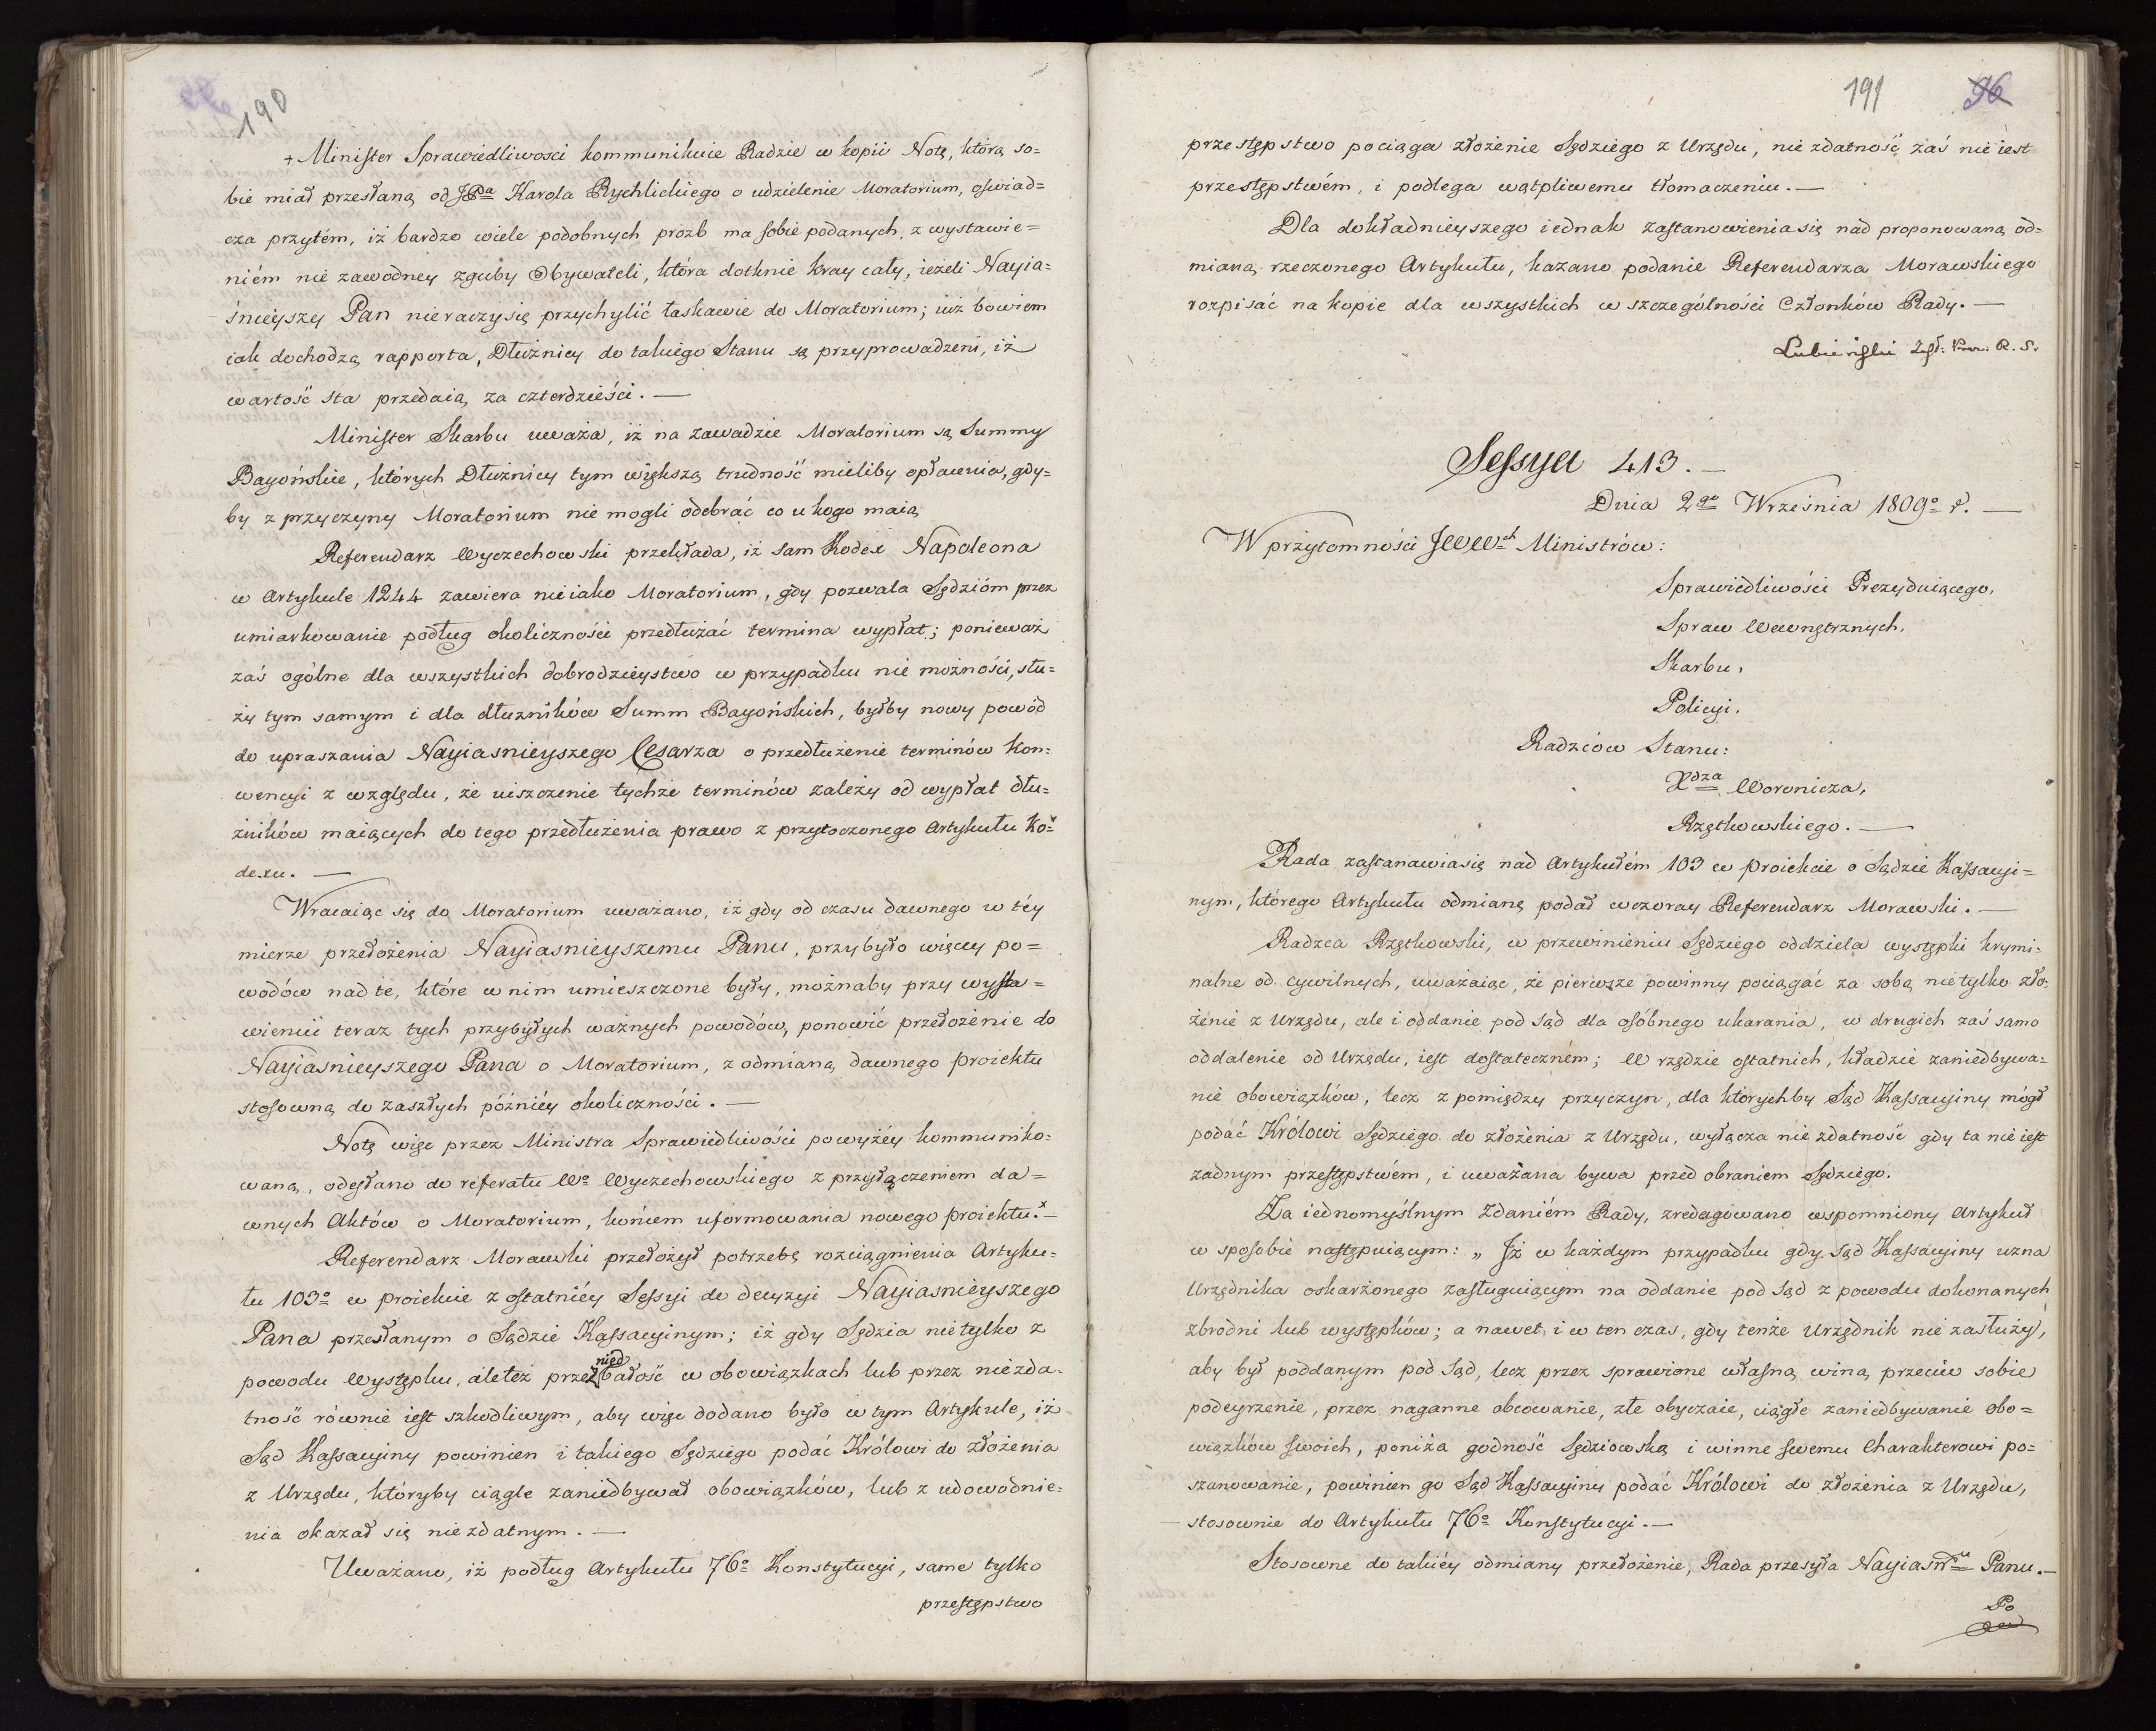 190
+ Minister Sprawiedliwosci kommunikuie Radzie w kopii Notę, którą so=
bie miał przesłaną od JPa Karola Rychlickiego o udzielenie Moratorium, oswiad=
cza przytém, iż bardzo wiele podobnych prozb ma sobie podanych, z wystawie=
niém nie zawodney zguby Obywateli, która dotknie kray cały, ieżeli Nayia=
śnieyszy Pan nieraczy się przychylić łaskawie do Moratorium; iuż bowiem
iak dochodzą rapporta, Dłużnicy do takiego Stanu są przyprowadzeni, iż
wartość sta przedaią za czterdzieści. —
Minister Skarbu uważa, iż na zawadzie Moratorium są Summy
Bayońskie, których Dłużnicy tym większą trudność mieliby opłacenia, gdy=
by z przyczyny Moratorium nie mogli odebrać co u kogo maią
Referendarz Wyczechowski przekłada, iż sam Kodex Napoleona
w Artykule 1244 zawiera nieiako Moratorium, gdy pozwala Sędzióm przez
umiarkowanie podług okoliczności przedłużać termina wypłat; ponieważ
zaś ogólne dla wszystkich dobrodzieystwo w przypadku nie możności, słu=
ży tym samym i dla dłużników Summ Bayońskich, byłby nowy powód
do upraszania Nayiasnieyszego Cesarza o przedłużenie terminów kon=
wencyi z względu, że uiszczenie tychże terminów zależy od wypłat dłu=
żników maiących do tego przedłużenia prawo z przytoczonego Artykułu Ko=
dexu. —
Wracaiąc się do Moratorium uważano, iż gdy od czasu dawnego w téy
mierze przełożenia Nayiasnieyszemu Panu, przybyło więcey po=
wodów nad te, które w nim umieszczone były, możnaby przy wysta=
wieniu teraz tych przybyłych ważnych powodów, ponowić przełożenie do
Nayiasnieyszego Pana o Moratorium, z odmianą dawnego proiektu
stosowną do zaszłych późniéy okoliczności. —
Notę więc przez Ministra Sprawiedliwości powyżéy kommuniko=
waną, odesłano do referatu Wo Wyczechowskiego z przyłączeniem da=
wnych Aktów o Moratorium, końcem uformowania nowego proiektu. x —
Referendarz Morawski przełożył potrzebę rozciągnienia Artyku=
łu 103o w proiekcie z ostatniéy Sessyi do decyzyi Nayiasnieyszego
Pana przesłanym o Sądzie Kassacyinym; iż gdy Sędzia nietylko z
powodu Występku, aleteż przez niedbałość w obowiązkach lub przez niezda=
tność równie iest szkodliwym, aby więc dodano było w tym Artykule, iż
Sąd Kassacyiny powinien i takiego Sędziego podać Królowi do złożenia
z Urzędu, któryby ciągle zaniedbywał obowiązków, lub z udowodnie=
nia okazał się niezdatnym. —
Uważano, iż podług Artykułu 76o Konstytucyi, same tylko
przestępstwo
191 96
przestępstwo pociąga złożenie Sędziego z Urzędu, nie zdatność zaś nie iest
przestępstwém, i podlega wątpliwemu tłomaczeniu. —
Dla dokładnieyszego iednak zastanowienia się nad proponowaną od=
mianą rzeczonego Artykułu, kazano podanie Referendarza Morawskiego
rozpisać na kopie dla wszystkich w szczególności Członków Rady. —
Lubieński R. S.
Sessya 413. —
Dnia 2go Wrzesnia 1809o r. —
W przytomności JWWch Ministrów:
Sprawiedliwości Prezyduiącego,
Spraw Wewnętrznych,
Skarbu,
Policyi.
Radzców Stanu:
Xdza Woronicza,
Rzętkowskiego. —
Rada zastanawia się nad Artykułém 103 w proiekcie o Sądzie Kassacyi=
nym, którego Artykułu odmianę podał wczoray Referendarz Morawski. —
Radzca Rzętkowski, w przewinieniu Sędziego oddziela występki krymi=
nalne od cywilnych, uważaiąc, że pierwsze powinny pociągać za sobą nietylko zło=
żenie z Urzędu, ale i oddanie pod Sąd dla osóbnego ukarania, w drugich zaś samo
oddalenie od Urzędu, iest dostateczném; W rzędzie ostatnich, kładzie zaniedbywa=
nie obowiązków, lecz z pomiędzy przyczyn, dla którychby Sąd Kassacyiny mógł
podać Królowi Sędziego do złożenia z Urzędu, wyłącza nie zdatność gdy ta nie iest
żadnym przestępstwém, i uważana bywa przed obraniem Sędziego.
Za iednomyślnym Zdaniém Rady, zredagowano wspomniony Artykuł
w sposobie następuiącym: „Iż w każdym przypadku gdy Sąd Kassacyiny uzna
Urzędnika oskarżonego zasługuiącym na oddanie pod Sąd z powodu dokonanych
zbrodni lub występków; a nawet i w ten czas, gdy tenże Urzędnik nie zasłuży,
aby był poddanym pod Sąd, lecz przez sprawione własną winą przeciw sobie
podeyrzenie, przez naganne obcowanie, złe obyczaie, ciągłe zaniedbywanie obo=
wiązków swoich, poniża godność Sędziowską i winne swemu Charakterowi po=
szanowanie, powinien go Sąd Kassacyiny podać Królowi do złożenia z Urzędu,
stosownie do Artykułu 76o Konstytucyi. —
Stosowne do takiéy odmiany przełożenie, Rada przesyła Nayiasnmu Panu. —
Po